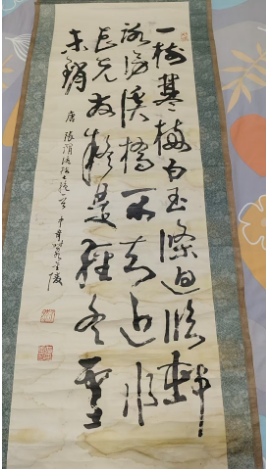 一樹寒梅白玉條迥臨邨
路傍溪橋不知近水
花先發疑是經冬雪
未銷
唐張謂